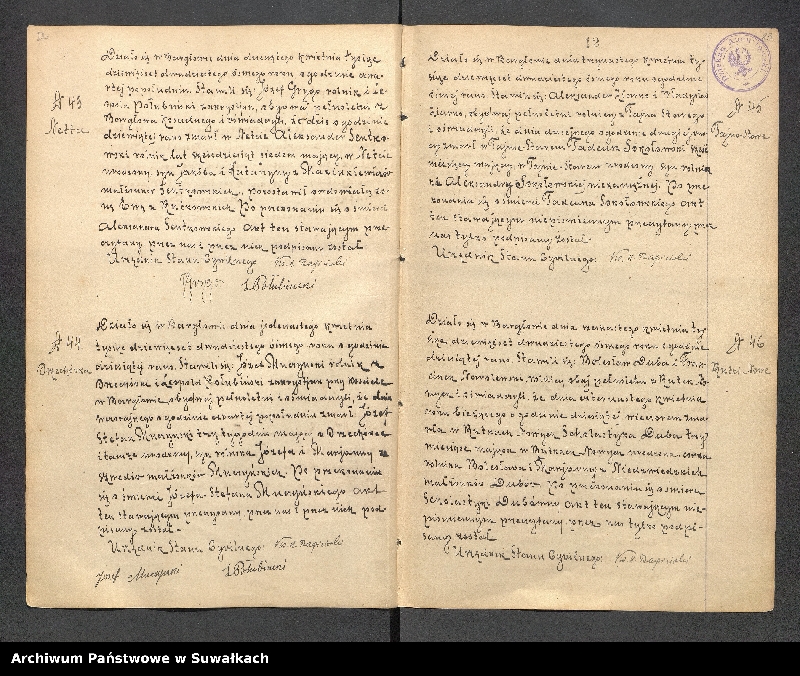 № 43
Netta
Działo się w Bargłowie dnia dziesiątego kwietnia tysiąc
dziewięćset dwudziestego ósmego roku o godzinie czwa-
rtej popołudniu. Stawili się: Józef Gryga rolnik i Le-
opold Połubiński zakrystjan, obydwa pełnoletni z
Bargłowa Kościelnego i oświadczyli, że dziś o godzinie
dziewiątej rano zmarł w Netcie Aleksander Sentko-
wski rolnik, lat sześćdziesiąt siedem mający, w Netcie
urodzony, syn Jakóba i Katarzyny z Marcinkiewiczów
małżonków Sentkowskich, pozostawił owdowiałą żo-
nę Ewę z Rutkowskich. Po przekonaniu się o śmierci
Aleksandra Sentkowskiego Akt ten stawającym prze-
czytany przez nas i przez nich podpisany został
Urzędnik Stanu Cywilnego
Gryga L Połubinski
№ 44
Brzozówka
Działo się w Bargłowie dnia jedenastego kwietnia
tysiąc dziewięćset dwudziestego ósmego roku o godzinie
dziesiątej rano. Stawili się: Józef Murzynski rolnik z
i Leopold Połubiński zakrystjan przy Kościele
w Bargłowie, obydwaj pełnoletni i oświadczyli, że dnia
o godzinie czwartej popołudniu zmarł Józef
Stefan Murzynski trzy tygodnie mający, w
i tamże urodzony, syn rolnika Józefa i Marjanny z
małżonków Murzynskich. Po przekonaniu
się o śmierci Józefa-Stefana Murzynskiego akt
ten stawającym przeczytany przez nas i przez nich pod-
pisany został.
Urzędnik Stanu Cywilnego:
Józef Murzynski L Połubinski
13
№ 45
Tajno-Stare
Działo się w Bargłowie dnia trzynastego kwietnia ty-
siąc dziewięćset dwudziestego ósmego roku o godzinie
rano. Stawili się: Aleksander i Władysław
obydwaj pełnoletni rolnicy z Tajna Starego
i oświadczyli, że dnia o godzinie
zmarł w Tajnie-Starem Tadeusz Sokołowski sześć
miesięcy mający, w Tajnie-Starem urodzony, syn rolnicz-
ki Aleksandry Sokołowskiej niezamężnej. Po prze-
konaniu się o śmierci Tadeusza Sokołowskiego Akt
ten stawającym niepiśmiennym przeczytany, przez
nas tylko podpisany został.
Urzędnik Stanu Cywilnego:
№ 46
Rutki Nowe
Działo się w Bargłowie dnia kwietnia ty-
siąc dziewięćset dwudziestego ósmego roku o godzinie
dziesiątej rano. Stawili się: Bolesław Duba i
rolnicy obaj pełnoletni z Rutek No-
wych i oświadczyli, że dnia czternastego kwietnia
roku bieżącego o godzinie dziesiątej wieczorem zma-
rła w Rutkach-Nowych Scholastyka Duba trzy
miesiące mająca, w Rutkach-Nowych urodzona córka
rolnika Bolesława i Marjanny z Niedźwiedzkich
małżonków Dubów. Po przekonaniu się o śmierci
Scholastyki Dubówny Akt ten stawającym nie-
piśmiennym przeczytany, przez nas tylko podpi-
sany został
Urzędnik Stanu Cywilnego:
Archiwum Państwowe w Suwałkach